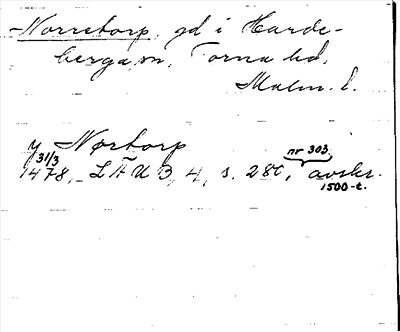 Norretorp, gd i Harde-
berga sn, Torna hd,
Malm. l.
y Nørtorp
31/3 nr 303.
1478, LÄU 3, 4, s. 280, avskr.
1500-t.